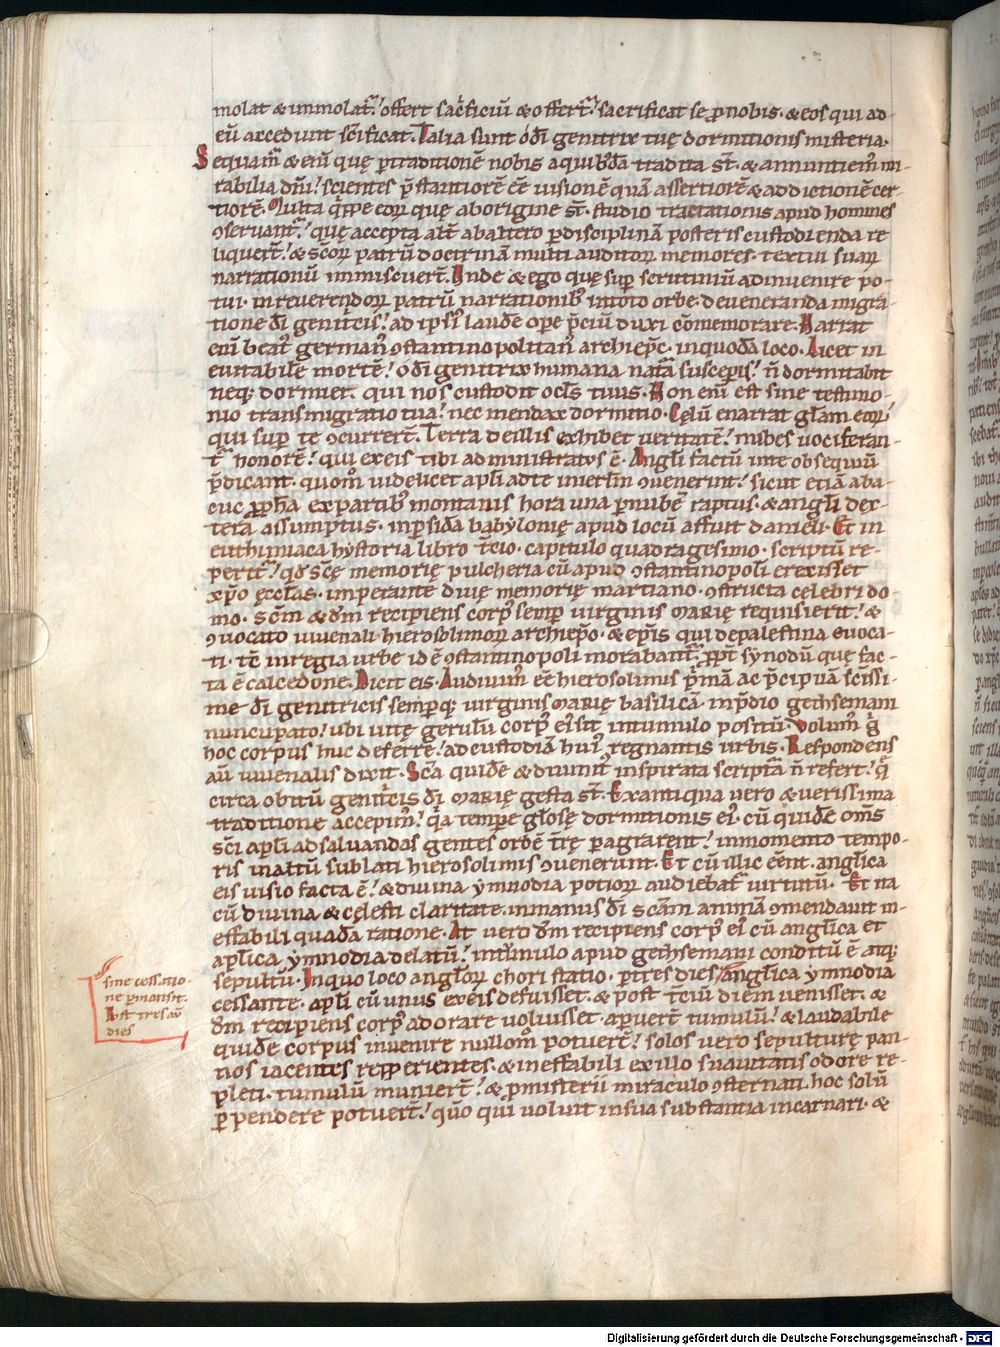 molat & immolat̃. offert sac̃ficiũ & offert̃. sacrificat se ꝓ nobis. & eos qui ad-
eũ accedunt sc̃ificat. Talia sunt ó dī genitrix tuę dormitionis misteria.
Sequam̃ & eni quę ꝑ traditionẽ nobis a quibꝰdã tradita st̃. & annuntiem̃ mi-
rabilia dn̄i. scientes p̃stantiorẽ eẽ uisionẽ quã assertiorẽ & ad dictionẽ cer-
tiorẽ. Iuxta q̃ppe eorꝝ quę ab origine st̃. studio tractationis apud homines
ɔseruant̃. quę accepta alt̃ ab altero ꝑ disciplinã posteris custodienda re
liquert̃. & sc̄orꝝ patrũ doctrinã multi auditorꝝ memores. textui suarꝝ
narrationũ immiscuert̃. Vnde & ego quę suꝑ scrutiniũ adinuenire po-
tui. in reuerendorꝝ patrũ narrationibꝰ in toto orbe. de ueneranda migra-
tione dī genit̃cis. ad ipsiꝰ laudẽ oꝑe p̃ciũ duxi cõmemorare. Narrat
eni beatꝰ germanꝰ ɔstantinopolitanꝰ archiep̄c. in quodã loco. Licet in
euitabilẽ mortẽ. ó dī genitrix humana natũ suscepis. n̄ dormitabit
neqꝫ dormiet. qui nos custodit oc̄ls tuus. Non eni est sine testimo-
nio transmigratio tua. nec mendax dormitio. Cęlũ enarrat gl̄am eorꝝ
qui suꝑ te ɔcurrert̃. Terra de illis exhibet ueritatẽ. nubes uociferan-
t̃ honorẽ. qui ex eis tibi administratꝰ ẽ. Angl̄i factũ in te obsequiũ
p̃dicant. quom̊ uidelicet apl̄i ad te in ierl̄m ɔuenerunt. sicut etiã aba-
cuc ꝓph̄a ex partibꝰ montanis hora una ꝑ nubẽ raptus. & angl̄i dex-
tera assumptus. in ꝑsidã babylonię apud locũ affuit danieli. Et in
euthimiaca hystoria libro t̃cio. capitulo quadragesimo. scriptũ re-
ꝑerit̃. qd̄ sc̄ę memorię pulcheria cũ apud ɔstantinopolĩ erexisset
xp̄o ęccl̄as. imperante diuę memorię martiano. ɔstructa celebri do
mo. sc̄m & dm̄ recipiens corpꝰ semꝑ uirginis MARIĘ requisierit. &
ɔuocato iuuenali hierosolimorꝝ archiep̄o. & ep̄is qui de palestina euoca-
ti. tc̄ in regia urbe id ẽ ɔstantinopoli morabant̃. ꝓpt̃ synodũ quę fac-
ta ẽ calcedone. Dicit eis. Audium̃ eẽ hierosolimis p̃mã ac p̃cipuã sc̄issi-
me dī genitricis semperqꝫ uirginis MARIĘ basilicã. in p̃dio gethsemani
nuncupato. ubi uitę gerulũ corpꝰ eiꝰ sit in tumulo positũ. Volumꝰ g̃
hoc corpus huc deferre. ad custodiã huiꝰ regnantis urbis. Respondens
aũ iuuenalis dixit. Sc̄a quidẽ & diuinitꝰ inspirata scriptã n̄ refert. q̃
circa obitũ genit̃cis dī MARIĘ gesta st̃. Ex antiqua uero & uerissima
traditione accepim̃. q̃a tempore gl̄osę dormitionis eiꝰ. cũ quidẽ om̄s
sc̄i apl̄i ad saluandas gentes orbẽ t̃rę ꝑagrarent. in momento tempo-
ris in altũ sublati hierosolimis ɔuenerunt. Et cũ illic eẽnt. angl̄ica
eis uisio facta ẽ. & diuina ymnodia potiorꝝ audiebat̃ uirtutũ. Et ita
cũ diuina & cęlesti claritate. in manus dī sc̄am animã ɔmendauit in-
effabili quadã ratione. At uero dm̄ recipiens corpꝰ eiꝰ cũ angl̄ica et
apl̄ica ymnodia delatũ. in tumulo apud gethsemani conditũ ẽ atqꝫ
sepultũ. In quo loco angl̄orꝝ chori statio. ꝑ tres dies / angl̄ica ymnodia
cessante. apl̄i cũ unus ex eis defuisset. & post t̃ciũ diem uenisset. &
dm̄ recipiens corpꝰ adorare uoluisset. aꝑuert̃ tumulũ. & laudabile
quidẽ corpus inuenire nullom̊ potuert̃. solos uero sepulturę pan-
nos iacentes reꝑperientes. & ineffabili ex illo suauitatis odore re-
pleti. tumulũ muniert̃. & ꝓ misterii miraculo ɔsternati. hoc solũ
ꝑpendere potuert̃. qũo qui uoluit in sua substantia incarnari. &
sine cessatio-
ne ꝑmansit.
Post tres aũ
dies
Digitalisierung gefördert durch die Deutsche Forschungsgemeinschaft - DFG